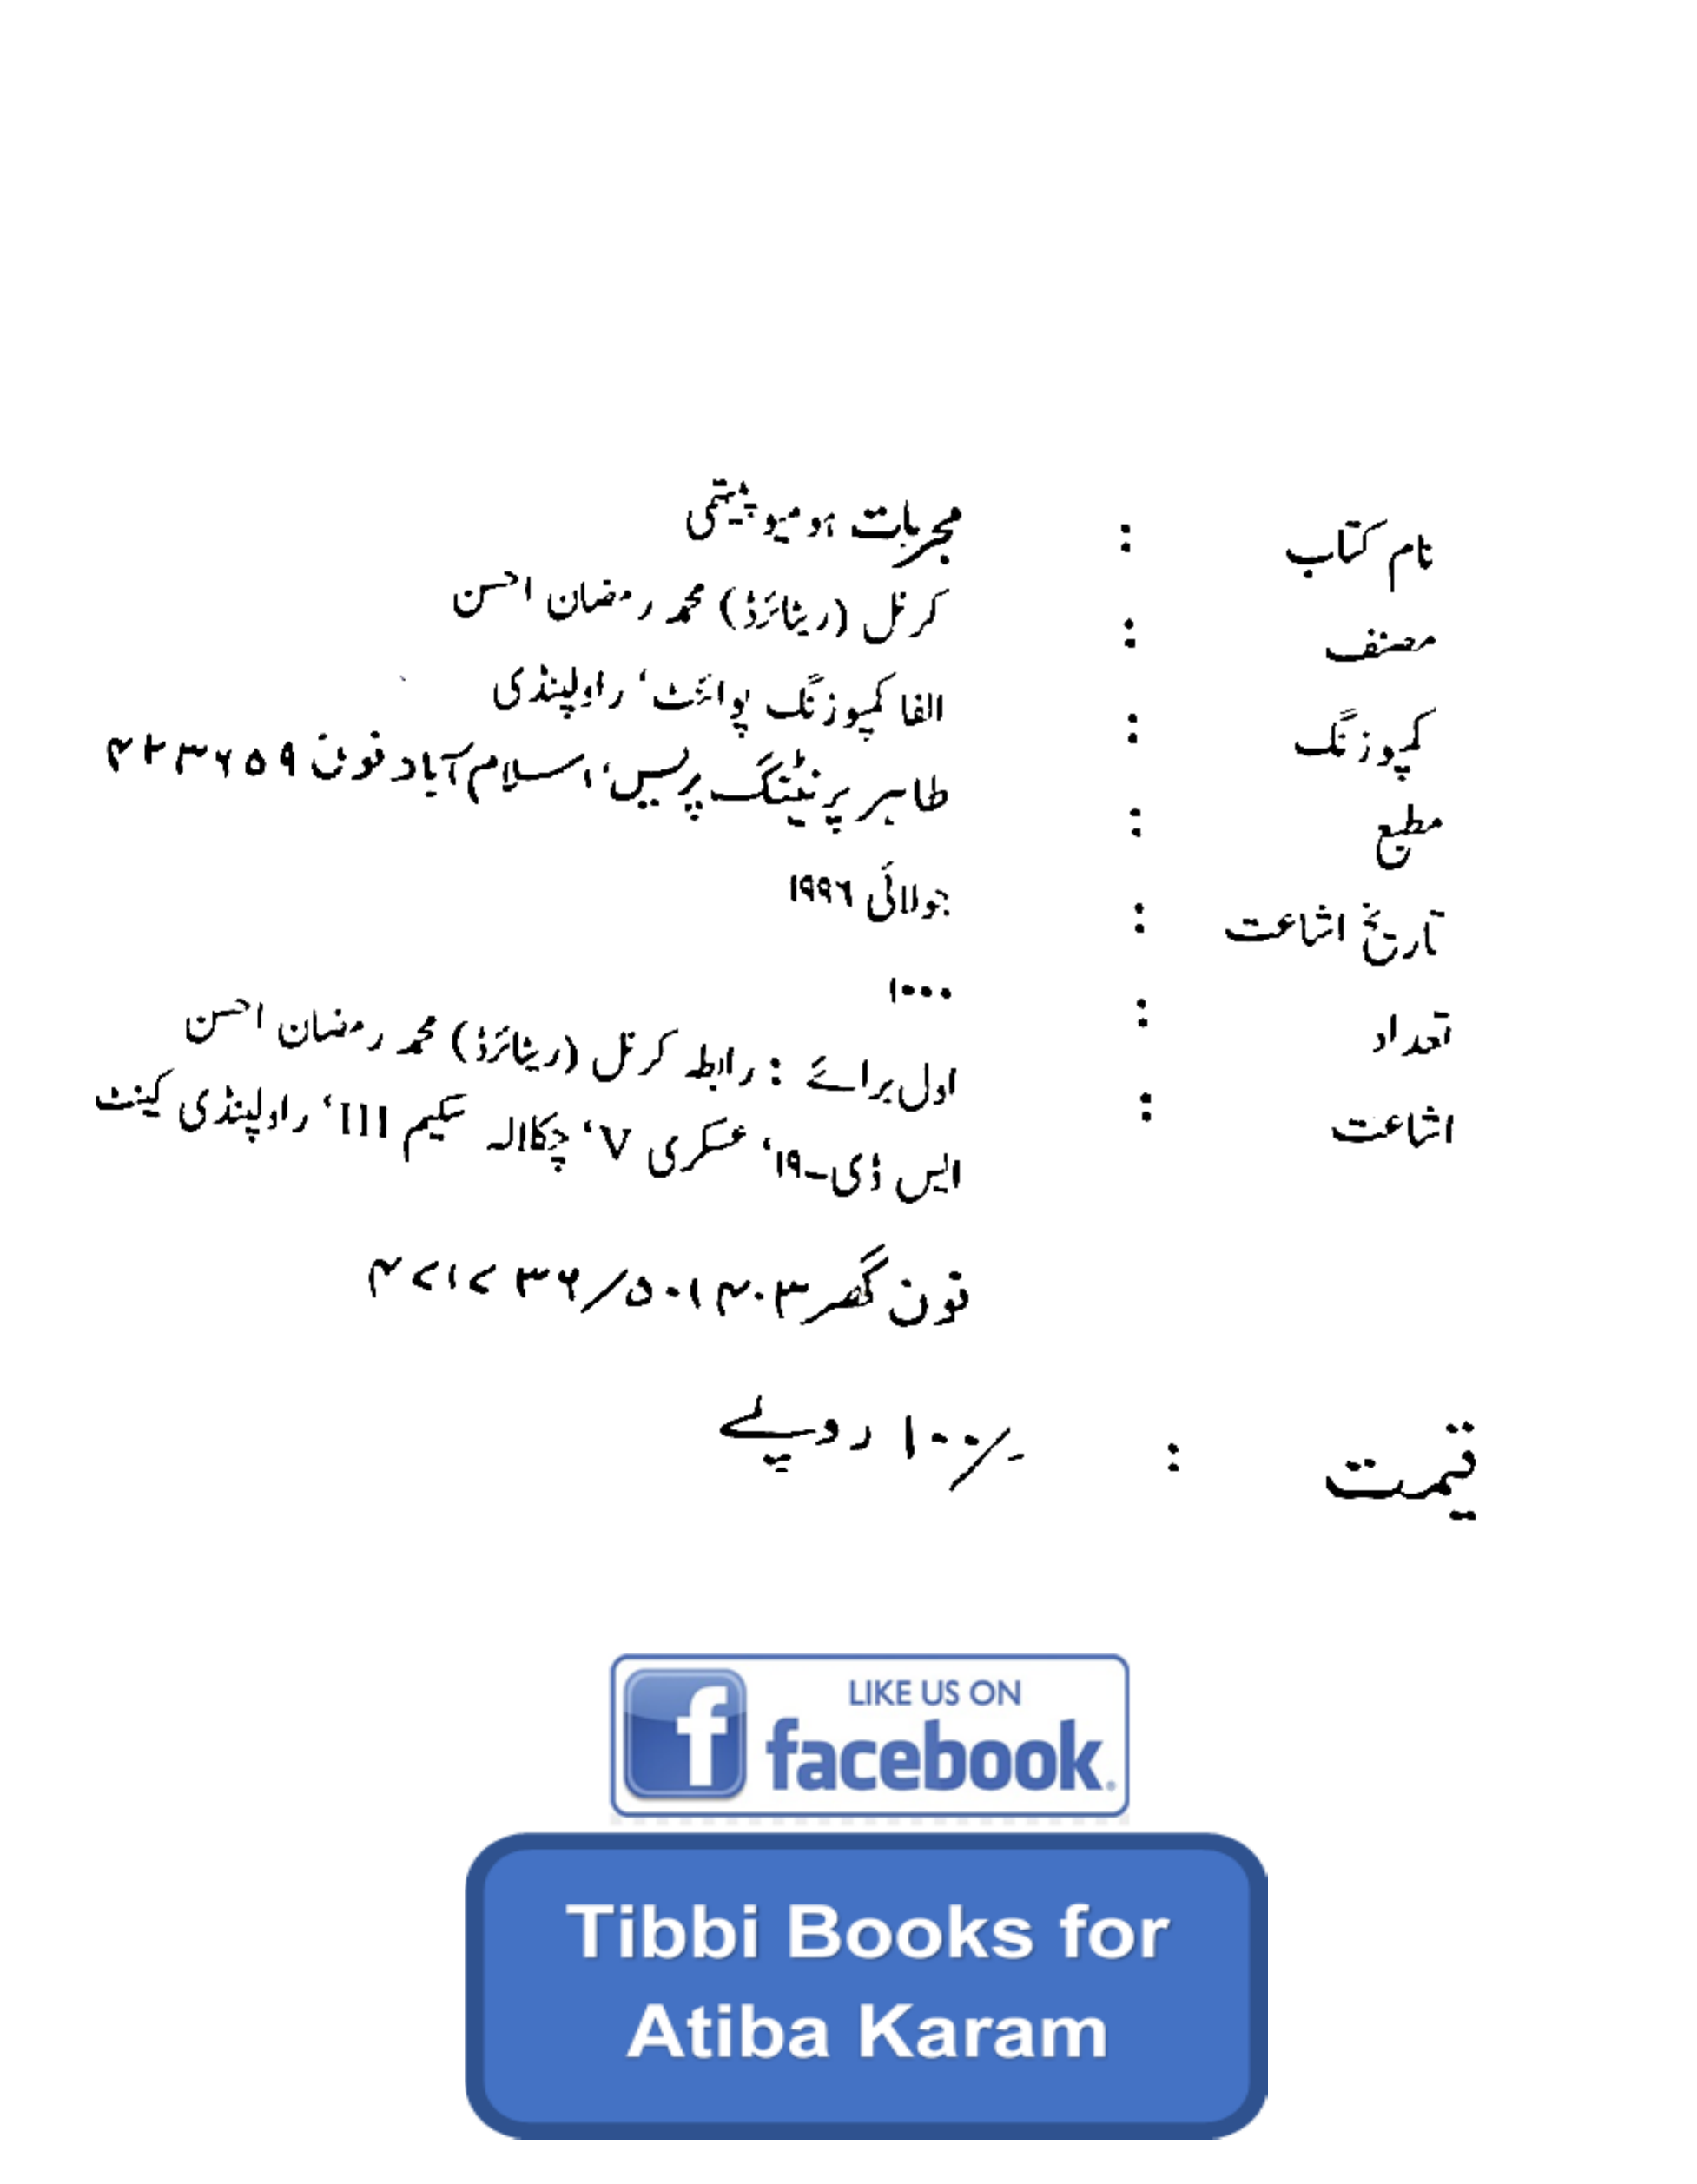 نام کتاب : مجربات ہومیوپیتھی
مصنف : کرنل (ریٹائرڈ) محمد رمضان احسن
کمپوزنگ : الفا کمپوزنگ پوائنٹ، راولپنڈی
مطبع : طاہر پرنٹنگ پریس، اسلام آباد فون ۴۲۳۶۵۹
تاریخ اشاعت : جولائی ۱۹۹۶
تعداد : ۱۰۰۰
اشاعت : اول برائے : رابطہ کرنل (ریٹائرڈ) محمد رمضان احسن
ایس ڈی۔۱۹، عسکری V، چکلالہ سکیم III، راولپنڈی کینٹ
فون گھر ۵۰۱۴۰۳/۴۷۱۷۳۶
قیمت : ۱۰۰/- روپے
LIKE US ON
facebook
Tibbi Books for
Atiba Karam